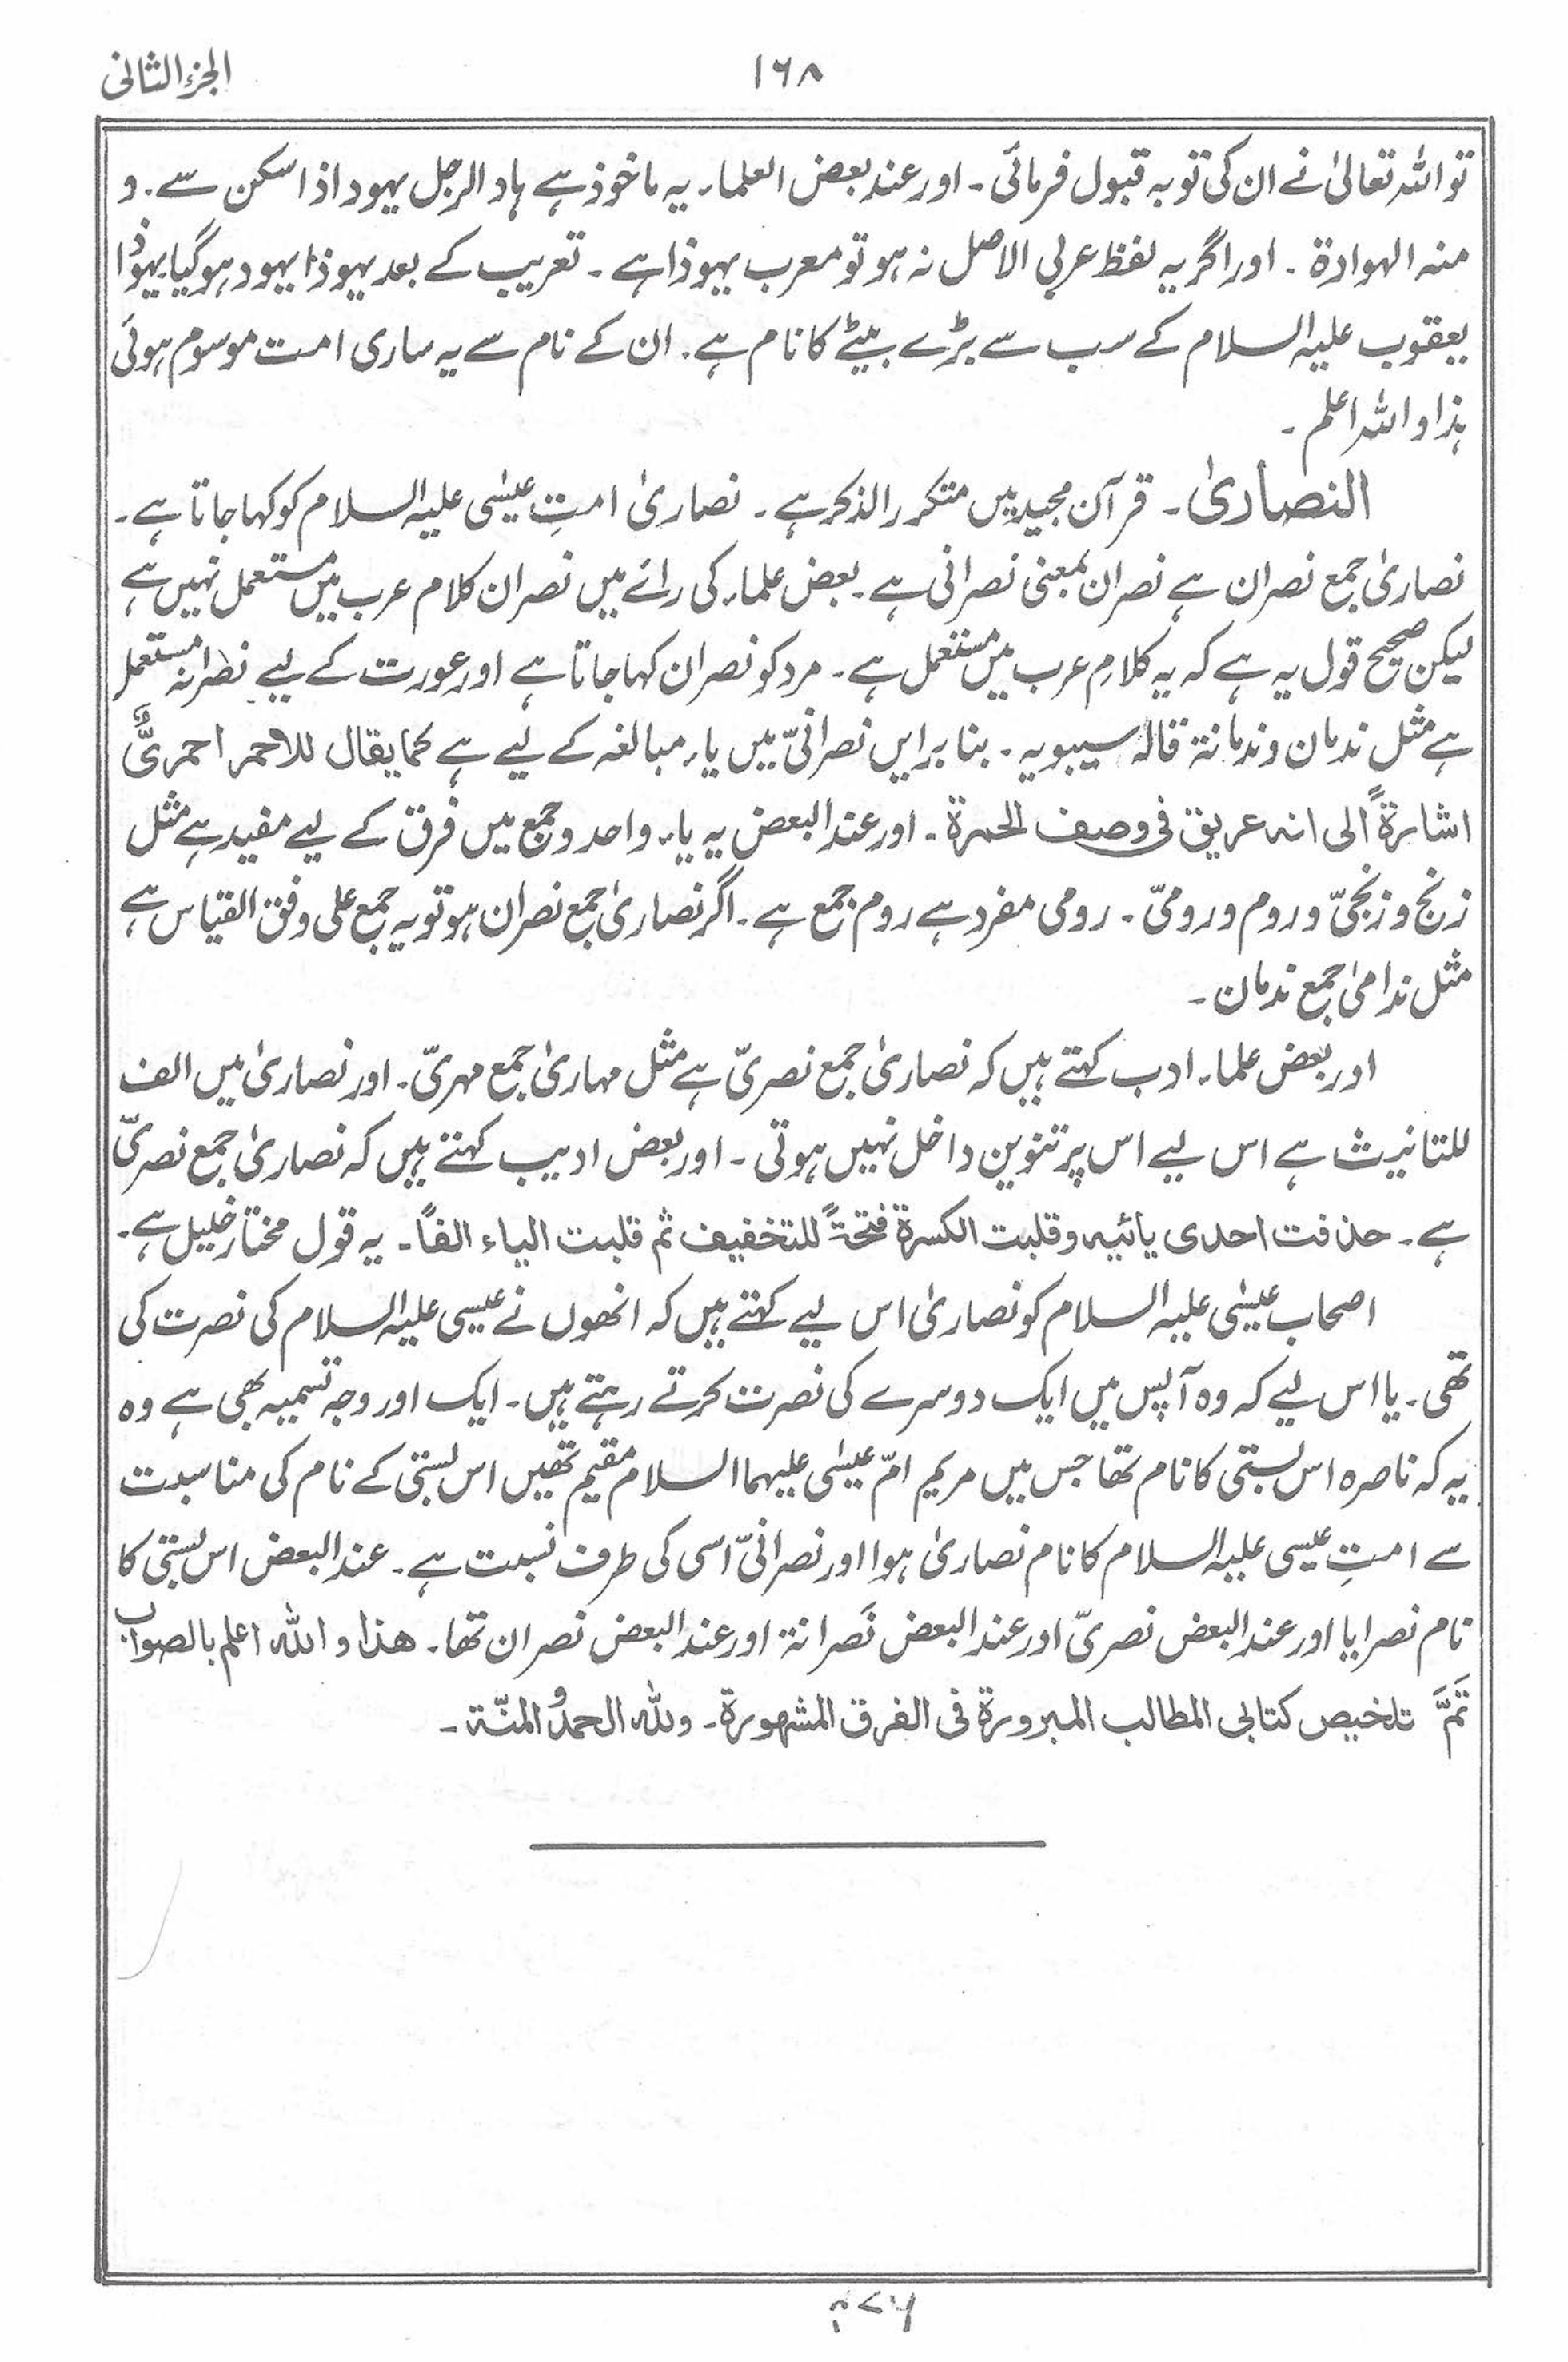 الجزء الثانی
۱۶۸
تو اللہ تعالیٰ نے ان کی توبہ قبول فرمائی ۔ اور عند بعض العلماء یہ ماخوذ ہے ہاد الرجل یہود اذا سکن سے ۔ و
منہ الہوادۃ ۔ اور اگر یہ لفظ عربی الاصل نہ ہو تو معرب یہوذا ہے ۔ تعریب کے بعد یہوذا یہود ہو گیا یہوذا
یعقوب علیہ السلام کے سب سے بڑے بیٹے کا نام ہے ۔ ان کے نام سے یہ ساری امت موسوم ہوئی
ہذا و اللہ اعلم ۔
النصاریٰ ۔ قرآن مجید میں متکرر الذکر ہے ۔ نصاریٰ امتِ عیسٰی علیہ السلام کو کہا جاتا ہے ۔
نصاریٰ جمع نصران ہے نصران بمعنی نصرانی ہے ۔ بعض علماء کی رائے میں نصران کلام عرب میں مستعمل نہیں ہے
لیکن صحیح قول یہ ہے کہ یہ کلامِ عرب میں مستعمل ہے ۔ مرد کو نصران کہا جاتا ہے اور عورت کے لیے نصرانہ مستعمل
ہے مثل ندمان وندمانۃ قالہ سیبویہ ۔ بنا بر ایں نصرانیّ میں یاء مبالغہ کے لیے ہے کما یقال للاحمر احمریٌّ
اشارۃً الی انہ عریق فی وصف الحمرۃ ۔ اور عند البعض یہ یاء واحد و جمع میں فرق کے لیے مفید ہے مثل
زنج و زنجیّ و روم و رومیّ ۔ رومی مفرد ہے روم جمع ہے ۔ اگر نصاریٰ جمع نصران ہو تو یہ جمع علی وفق القیاس ہے
مثل ندامیٰ جمع ندمان ۔
اور بعض علماء ادب کہتے ہیں کہ نصاریٰ جمع نصریّ ہے مثل مہاریٰ جمع مہریّ ۔ اور نصاریٰ میں الف
للتانیث ہے اس لیے اس پر تنوین داخل نہیں ہوتی ۔ اور بعض ادیب کہتے ہیں کہ نصاریٰ جمع نصریّ
ہے ۔ حذفت احدی یائیہ وقلبت الکسرۃ فتحۃً للتخفیف ثم قلبت الیاء الفًا ۔ یہ قول مختار خلیل ہے ۔
اصحاب عیسٰی علیہ السلام کو نصاریٰ اس لیے کہتے ہیں کہ انھوں نے عیسی علیہ السلام کی نصرت کی
تھی ۔ یا اس لیے کہ وہ آپس میں ایک دوسرے کی نصرت کرتے رہتے ہیں ۔ ایک اور وجہ تسمیہ بھی ہے وہ
یہ کہ ناصرہ اس بستی کا نام تھا جس میں مریم امّ عیسٰی علیہما السلام مقیم تھیں اس بستی کے نام کی مناسبت
سے امتِ عیسی علیہ السلام کا نام نصاریٰ ہوا اور نصرانیّ اسی کی طرف نسبت ہے ۔ عند البعض اس بستی کا
نام نصرایا اور عند البعض نصریّ اور عند البعض نَصرانۃ اور عند البعض نصران تھا ۔ ھذا و اللہ اعلم بالصواب
تَمَّ تلخیص کتابی المطالب المبرورۃ فی الفرق المشہورۃ ۔ وللہ الحمدُ والمنّۃ ۔